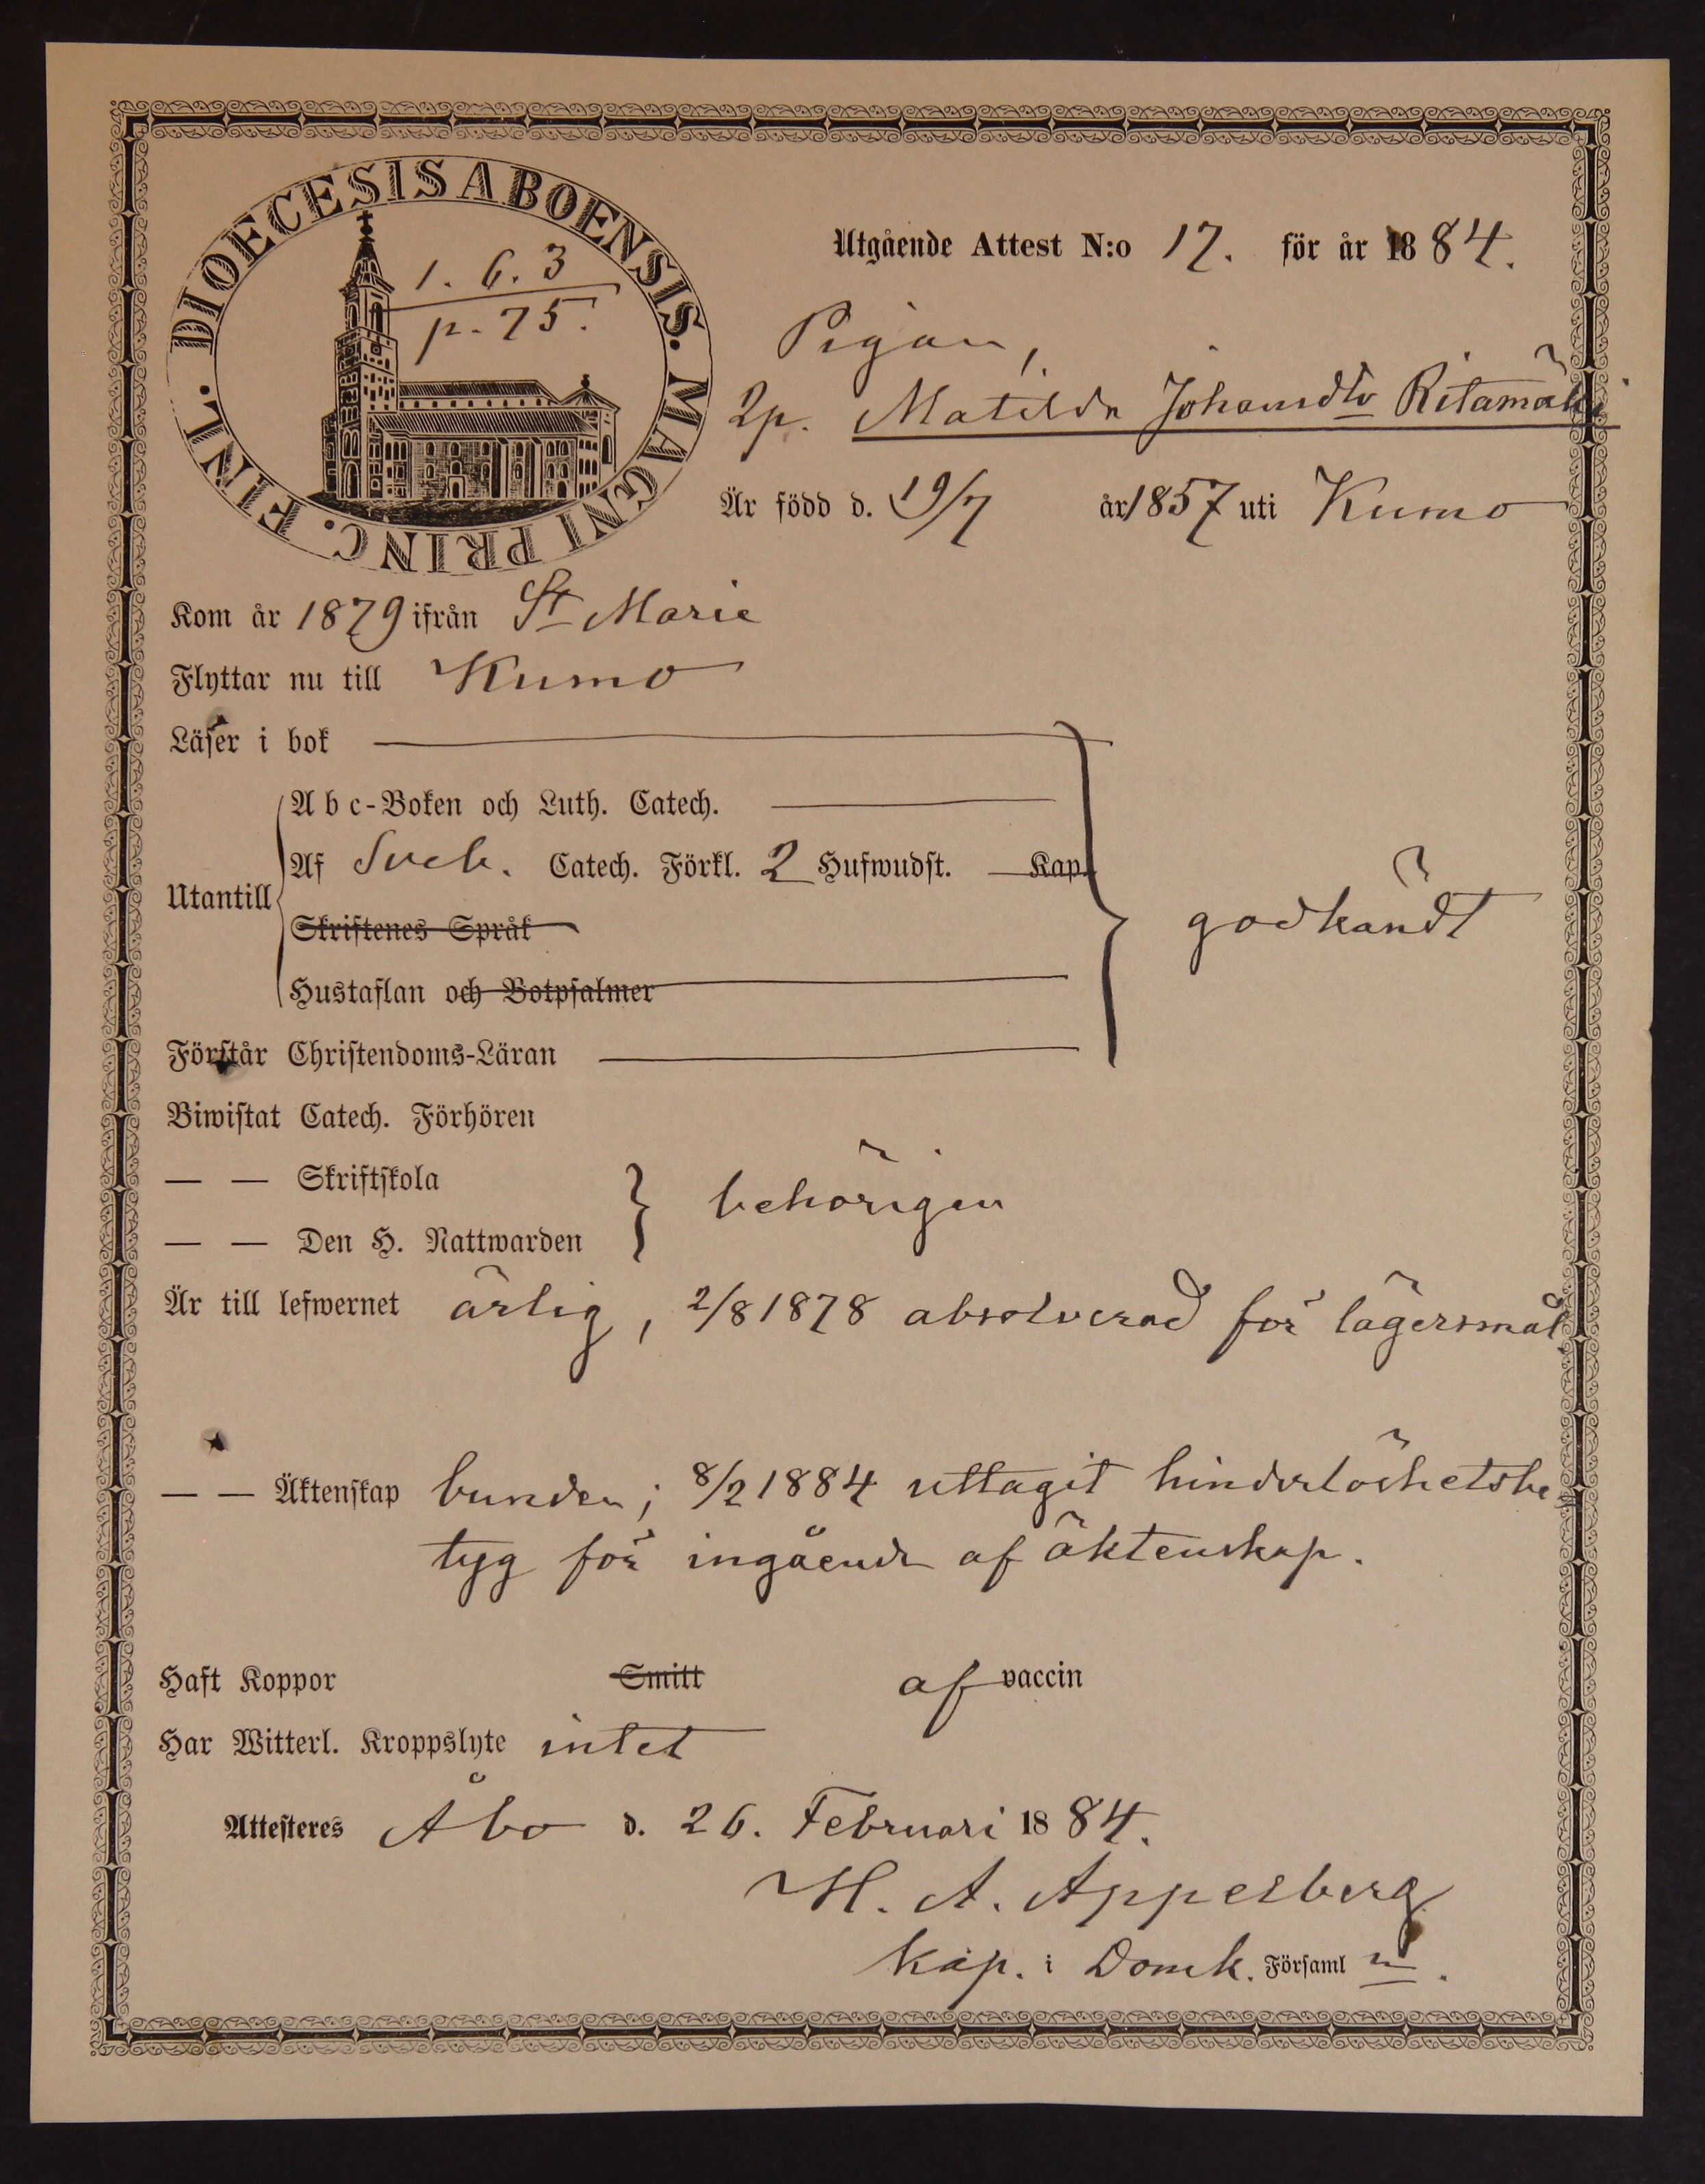 DIOECESIS ABOENSIS. MAGNI PRINC. FINL.
1. 6. 3
p. 75.
Utgående Attest N:o 17. för år 1884.
Pigan,
2p. Matilda Johansdtr Ritamäki
Är född d. 19/7 år 1857 uti Kumo
Kom år 1879 ifrån St Marie
Flyttar nu till Kumo
Läser i bok
Utantill
Abc-Boken och Luth. Catech.
Af Sveb. Catech. Förkl. 2 Hufwudst. Kap.
Skriftenes Språk
Hustaflan och Botpsalmer
godkändt
Förstår Christendoms-Läran
Biwistat Catech. Förhören
— — Skriftskola
— — Den H. Nattwarden
behörigen
Är till lefwernet ärlig, 2/8 1878 absolverad för lägersmål
— — Äktenskap bunden; 8/2 1884 uttagit hinderlöshetsbe-
tyg för ingående af äktenskap.
Haft Koppor Smitt af vaccin
Har Witterl. Kroppslyte intet
Attesteres Åbo d. 26. Februari 1884.
H. A. Appelberg
Kap. i Domk. Församl n.